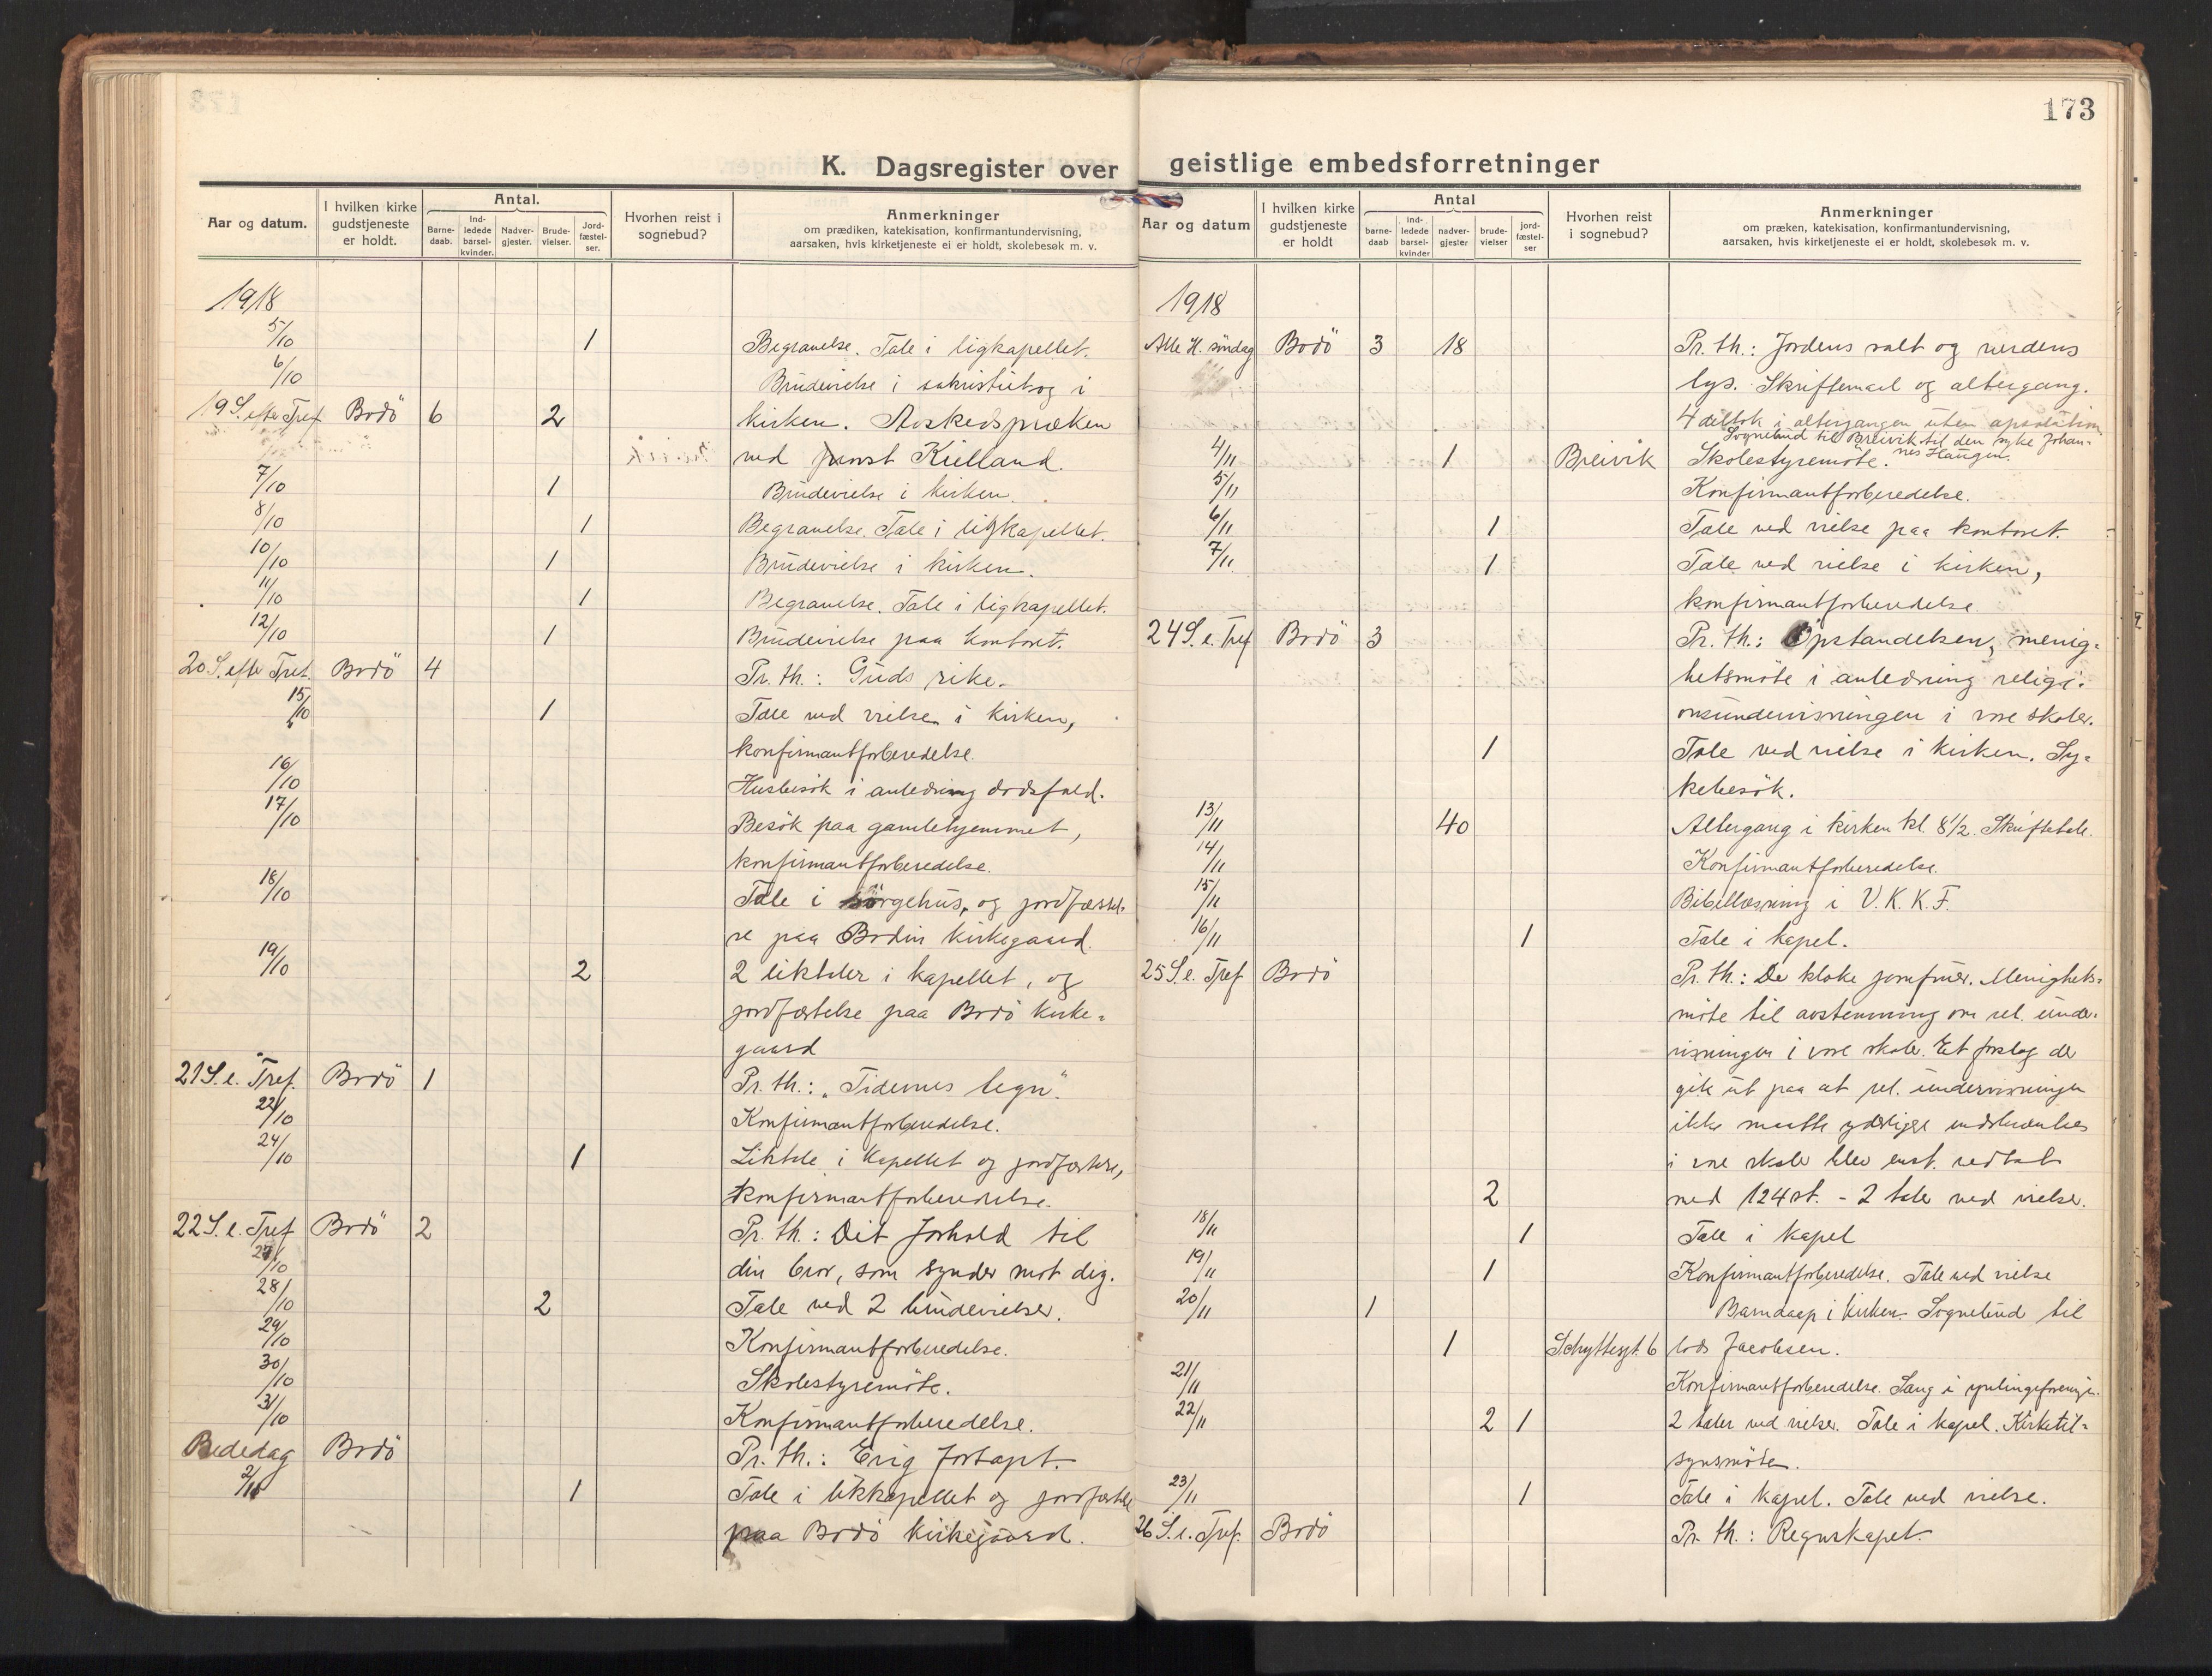 173
K. Dagsregister over geistlige embedsforretninger
Aar og datum.
I hvilken kirke gudstjeneste er holdt.
Antal.
Barne-daab.
Ind-ledede barsel-kvinder.
Nadver-gjester.
Brude-vielser.
Jord-fæstel-ser.
Hvorhen reist i sognebud?
Anmerkninger
om prædiken, katekisation, konfirmantundervisning,
aarsaken, hvis kirketjeneste ei er holdt, skolebesøk m. v.
1918
5/10 1 Begravelse. Tale i ligkapellet.
6/10 Brudevielse i sakristiet og i
19 S. efter Tref Bodö 6 2 kirken. Avskedspræken
ved provst Kielland.
7/10 1 Brudevielse i kirken.
8/10 1 Begravelse. Tale i ligkapellet.
10/10 1 Brudevielse i kirken.
11/10 1 Begravelse. Tale i ligkapellet.
12/10 1 Brudevielse paa kontoret.
20 S. efter Tref. Bodö 4 Pr. th.: Guds rike.
15/10 1 Tale ved vielse i kirken,
konfirmantforberedelse.
16/10 Husbesök i anledning dødsfald.
17/10 Besök paa gamlehjemmet,
konfirmantforberedelse.
18/10 Tale i sörgehus, og jordfæstel-
se paa Bodin kirkegaard.
19/10 2 2 liktaler i kapellet, og
jordfæstelse paa Bodö kirke-
gaard
21 S. e. Tref. Bodö 1 Pr. th.: "Tidernes tegn".
22/10 Konfirmantforberedelse.
24/10 1 Liktale i kapellet og jordfæstelse,
konfirmantforberedelse.
22 S. e. Tref Bodö 2 Pr. th.: Dit forhold til
27/10 din bror, som synder mot dig.
28/10 2 Tale ved 2 brudevielser.
29/10 Konfirmantforberedelse.
30/10 Skolestyremöte.
31/10 Konfirmantforberedelse.
Bededag Bodö Pr. th.: Evig fortapt.
2/11 1 Tale i likkapellet og jordfæstelse
paa Bodö kirkegaard.
Aar og datum
I hvilken kirke gudstjeneste er holdt
Antal
barne-daab
ind-ledede barsel-kvinder
nadver-gjester
brude-vielser
jord-fæstel-ser
Hvorhen reist i sognebud?
Anmerkninger
om præken, katekisation, konfirmantundervisning,
aarsaken, hvis kirketjeneste ei er holdt, skolebesøk m. v.
1918
Alle H. söndag Bodö 3 18 Pr. th.: Jordens salt og verdens
lys. Skriftemaal og altergang.
4 deltok i altergangen uten absolution
Sognebud til Breivik til den syke Johan-
4/11 1 Breivik Skolestyremöte. nes Haugen.
5/11 Konfirmantforberedelse.
6/11 1 Tale ved vielse paa kontoret.
7/11 1 Tale ved vielse i kirken,
konfirmantforberedelse.
24 S. e. Tref Bodö 3 Pr. th.: Opstandelsen, menig-
hetsmöte i anledning religi-
onsundervisningen i vore skoler.
1 Tale ved vielse i kirken. Sy-
kebesök.
13/11 40 Altergang i kirken kl. 8 1/2. Skriftetale.
14/11 Konfirmantforberedelse.
15/11 Bibellæsning i V. K. K. F.
16/11 1 Tale i kapel.
25 S. e. Tref Bodö Pr. th.: De kloke jomfruer. Menighets-
möte til avstemning om rel. under-
visningen i vore skoler. Et forslag der
gik ut paa at rel. undervisningen
ikke maatte yderligere indskrænkes
i vore skoler blev enst. vedtat
2 med 124 st. - 2 taler ved vielse.
18/11 1 Tale i kapel
19/11 1 Konfirmantforberedelse. Tale ved vielse
20/11 1 Barndaap i kirken. Sognebud til
1 Schyttesgt. 6 lods Jacobsen.
21/11 Konfirmantforberedelse. Sang i ynlingeforening.
22/11 2 1 2 taler ved vielser. Tale i kapel. Kirketil-
synsmöte.
23/11 1 Tale i kapel. Tale ved vielse.
26 S. e. Tref. Bodö Pr. th.: Regnskapet.